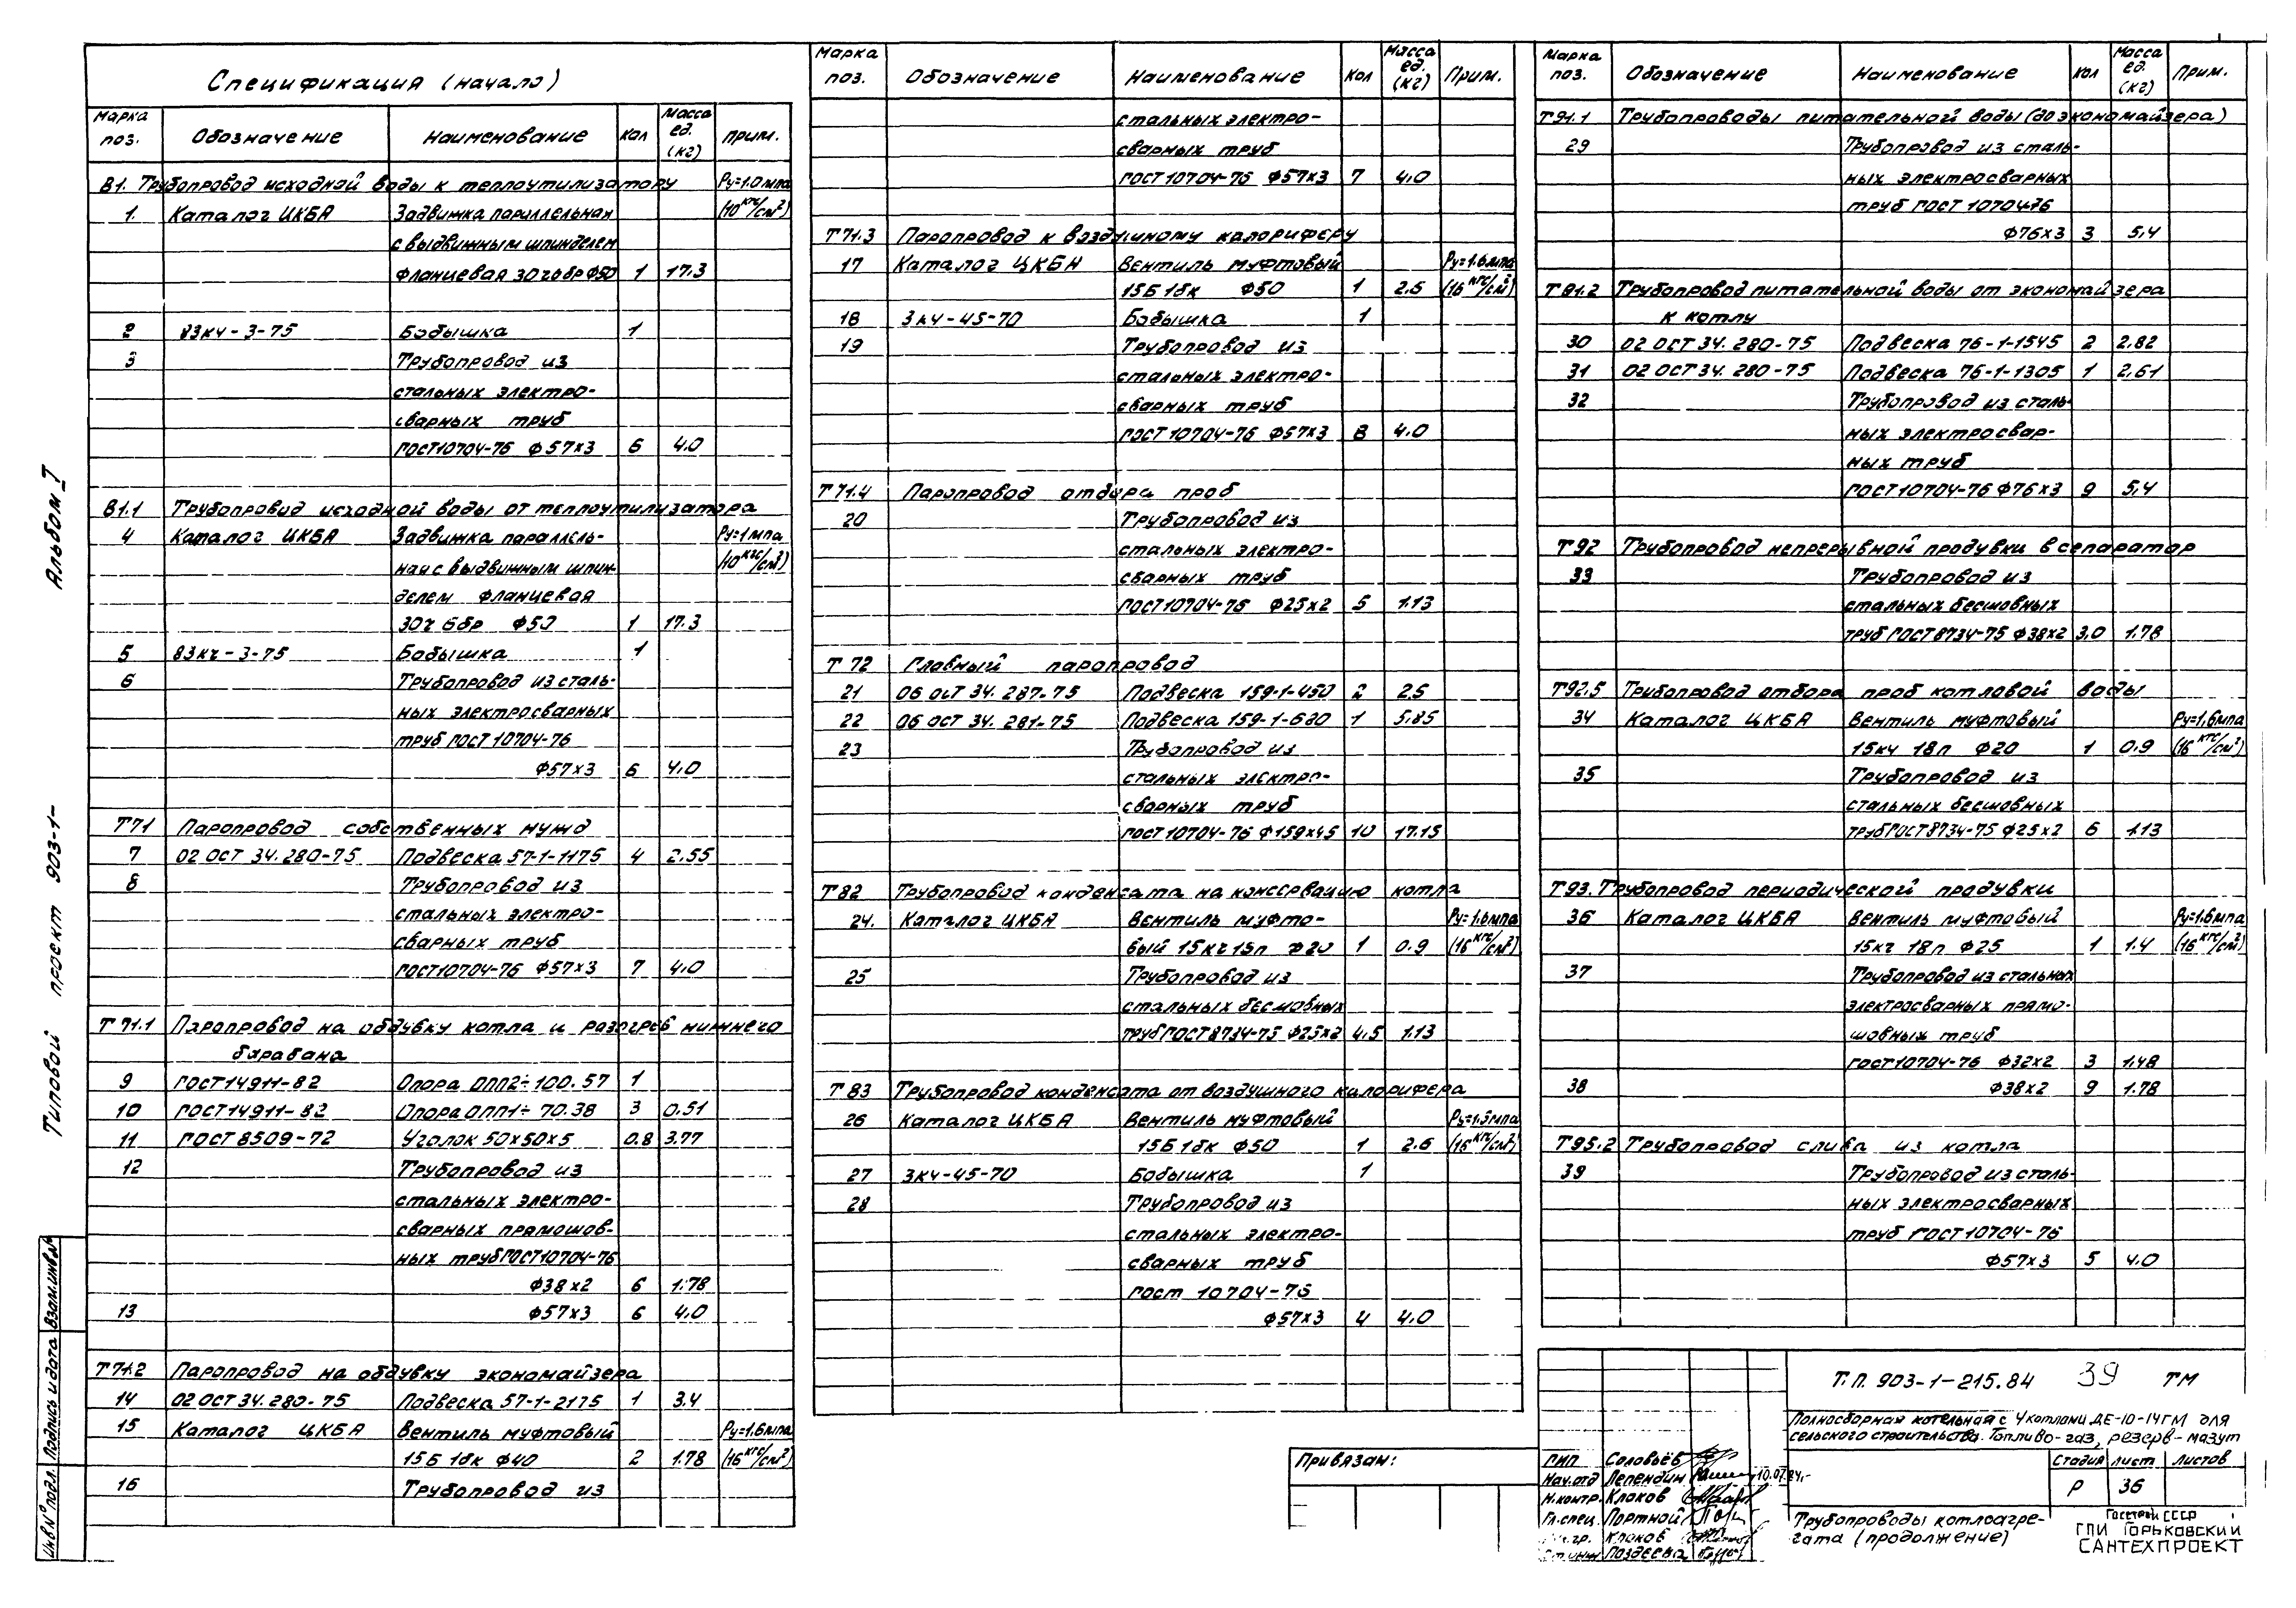 Спецификация (начало)
Марка поз. Обозначение Наименование Кол Масса ед. (кг) Прим.
В1. Трубопровод исходной воды к теплоутилизатору Ру=1.0мпа
1. Каталог ЦКБА Задвижка параллельная (10кгс/см²)
с выдвижным шпинделем
фланцевая 30ч6бр ф50 1 17.3
2 83кч-3-75 Бобышка 1
3 Трубопровод из
стальных электро-
сварных труб
ГОСТ10704-76 ф57х3 6 4.0
В1.1 Трубопровод исходной воды от теплоутилизатора
4 Каталог ЦКБА Задвижка параллель- Ру=1мпа
ная с выдвижным шпин- (10кгс/см²)
делем фланцевая
30ч6бр ф50 1 17.3
5 83кч-3-75 Бобышка 1
6 Трубопровод из сталь-
ных электросварных
труб ГОСТ 10704-76
ф57х3 6 4,0
Т71 Паропровод собственных нужд
7 02 ОСТ 34.280-75 Подвеска 57-1-1175 4 2.55
8 Трубопровод из
стальных электро-
сварных труб
ГОСТ10704-76 ф57х3 7 4,0
Т71.1 Паропровод на обдувку котла и разогрев нижнего
барабана
9 ГОСТ14911-82 Опора ОПП2-100.57 1
10 ГОСТ14911-82 Опора ОПП1-70.38 3 0.51
11 ГОСТ 8509-72 Уголок 50х50х5 0.8 3.77
12 Трубопровод из
стальных электро-
сварных прямошов-
ных труб ГОСТ10704-76
ф38х2 6 1.78
13 ф57х3 6 4.0
Т71.2 Паропровод на обдувку экономайзера
14 02 ОСТ 34.280-75 Подвеска 57-1-2175 1 3.4
15 Каталог ЦКБА Вентиль муфтовый Ру=1,6мпа
15Б 18к ф40 2 1.78 (16кгс/см²)
16 Трубопровод из
Марка поз. Обозначение Наименование Кол Масса ед. (кг) Прим.
стальных электро-
сварных труб
ГОСТ10704-76 ф57х3 7 4,0
Т71.3 Паропровод к воздушному калориферу
17 Каталог ЦКБА Вентиль муфтовый Ру=1.6мпа
15Б 18к ф50 1 2.6 (16кгс/см²)
18 3кч-45-70 Бобышка 1
19 Трубопровод из
стальных электро-
сварных труб
ГОСТ 10704-76 ф57х3 8 4.0
Т71.4 Паропровод отбора проб
20 Трубопровод из
стальных электро-
сварных труб
ГОСТ10704-76 ф25х2 5 1.13
Т72 Главный паропровод
21 06 ОСТ 34.287-75 Подвеска 159-1-450 2 25
22 06 ОСТ 34.281-75 Подвеска 159-1-680 1 5.85
23 Трубопровод из
стальных электро-
сварных труб
ГОСТ10704-76 ф159х4,5 10 17.15
Т82 Трубопровод конденсата на консервацию котла
24. Каталог ЦКБА Вентиль муфто- Ру=1,6мпа
вый 15кч18п ф20 1 0.9 (16кгс/см²)
25 Трубопровод из
стальных бесшовных
труб ГОСТ8734-75 ф25х2 4.5 1.13
Т83 Трубопровод конденсата от воздушного калорифера
26 Каталог ЦКБА Вентиль муфтовый Ру=1,6мпа
15Б 18к ф50 1 2.6 (16кгс/см²)
27 3кч-45-70 Бобышка 1
28 Трубопровод из
стальных электро-
сварных труб
ГОСТ 10704-76
ф57х3 4 4.0
Марка поз. Обозначение Наименование Кол Масса ед. (кг) Прим.
Т91.1 Трубопроводы питательной воды (до экономайзера)
29 Трубопровод из сталь-
ных электросварных
труб ГОСТ 10704-76
ф76х3 3 5,4
Т91.2 Трубопровод питательной воды от экономайзера
к котлу
30 02 ОСТ 34.280-75 Подвеска 76-1-1545 2 2.82
31 02 ОСТ 34.280-75 Подвеска 76-1-1305 1 2,61
32 Трубопровод из сталь-
ных электросвар-
ных труб
ГОСТ10704-76 ф76х3 9 5,4
Т92 Трубопровод непрерывной продувки в сепаратор
33 Трубопровод из
стальных бесшовных
труб ГОСТ8734-75 ф38х2 3,0 1.78
Т92.5 Трубопровод отбора проб котловой воды
34 Каталог ЦКБА Вентиль муфтовый Ру=1,6мпа
15кч 18п ф20 1 0,9 (16кгс/см²)
35 Трубопровод из
стальных бесшовных
труб ГОСТ8734-75 ф25х2 6 1.13
Т93. Трубопровод периодической продувки
36 Каталог ЦКБА Вентиль муфтовый Ру=1,6мпа
15кч 18п ф25 1 1.4 (16кгс/см²)
37 Трубопровод из стальных
электросварных прямо-
шовных труб
ГОСТ10704-76 ф32х2 3 1.48
38 ф38х2 9 1.78
Т95.2 Трубопровод слива из котла
39 Трубопровод из сталь-
ных электросварных
труб ГОСТ10704-76
ф57х3 5 4.0
Альбом I
Типовой проект 903-1-
Взам.инв.№
Подпись и дата
Инв.№ подл.
Привязан:
Т.П. 903-1-215.84 39 ТМ
Полносборная котельная с 4 котлами ДЕ-10-14ГМ для
сельского строительства. Топливо-газ, резерв-мазут
ГИП Соловьёв
Нач.отд Лепендин 10.07.84г.
Н.контр. Клоков
Гл.спец. Портной
гр. Клоков
Ст.инж Поздеева
Стадия Лист Листов
Р 36
Трубопроводы котлоагре-
гата (продолжение)
Госстрой СССР
ГПИ ГОРЬКОВСКИЙ
САНТЕХПРОЕКТ